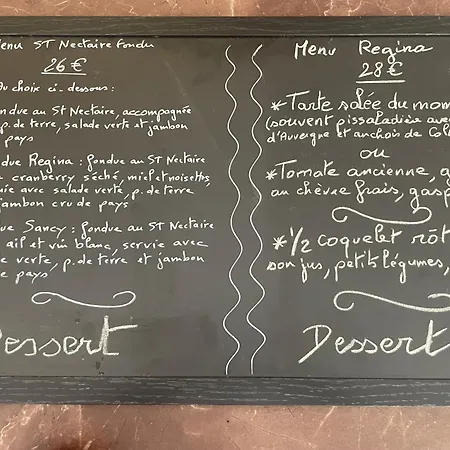 Menu ST Nectaire fondu
26€
Au choix ci-dessous:
ondue au St Nectaire, accompagnée
p.de terre, salade verte et jambon
pays
due Regina : fondue au ST Nectaire
cranberry séché, miel et noisettes,
vie avec salade verte, p. de terre
jambon cru de pays
ue Sancy : fondue au ST Nectaire
ail et vin blanc, servie avec
e verte, p. de terre et jambon
de pays
Dessert
Menu Regina
28€
*Tarte salée du mom
(souvent pissaladière avec
d'Auvergne et anchois de Coll
ou
*Tomate ancienne, g
au chèvre frais, gasp
*1/2 coquelet rôt
son jus, petits légumes,
Dessert